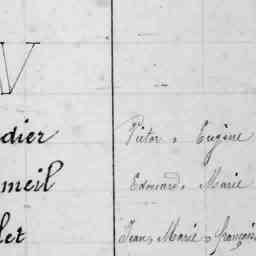 V
dier Victor, Eugène
meil Edouard, Marie
let Jean, Marie, françois